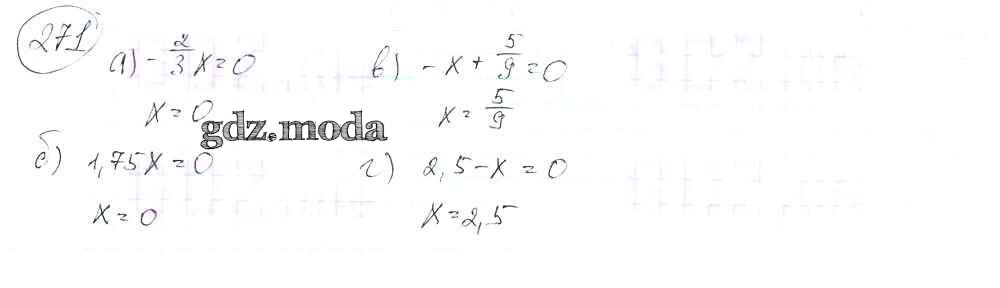 271
а) -2/3 x = 0
x = 0
б) 1,75x = 0
x = 0
в) -x + 5/9 = 0
x = 5/9
г) 2,5 - x = 0
x = 2,5
gdz.moda